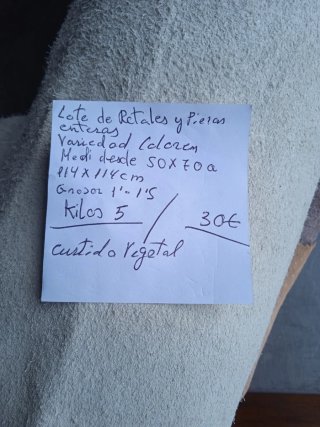 Lote de Retales y Piezas
enteras
Variedad Colores
Medi desde 50x70 a
114x114cm
Grosor 1'- 1'5
Kilos 5 / 30€
Curtido Vegetal